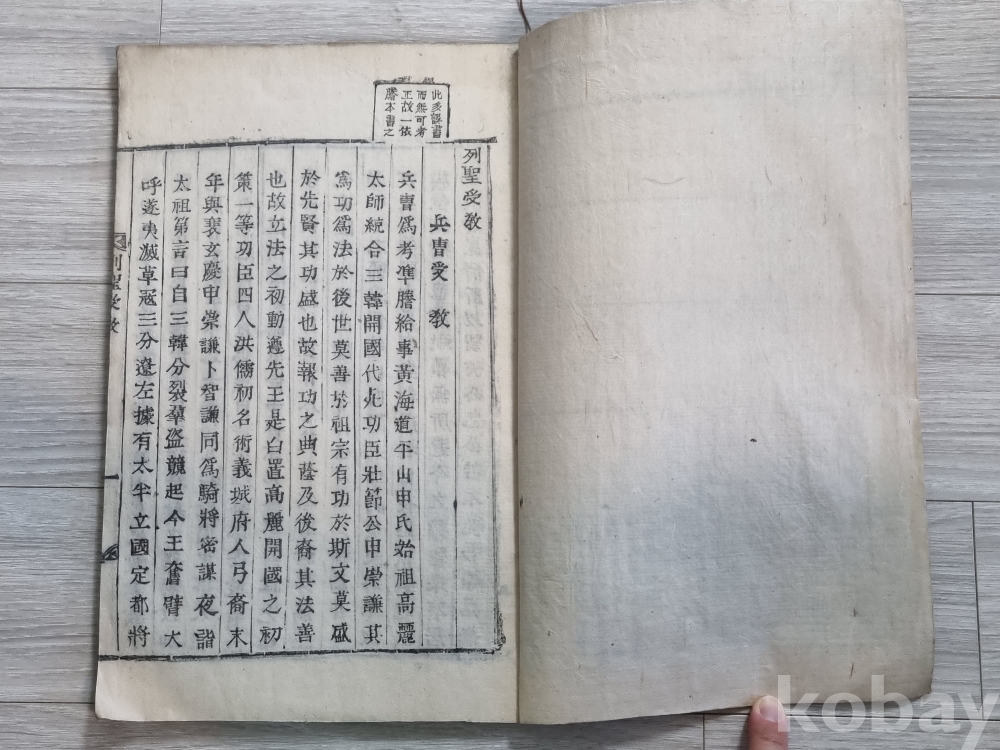 列聖受敎
兵曹受敎
兵曹爲考準謄給事黃海道平山申氏始祖高麗
太師統合三韓開國代死功臣壯節公申崇謙其
爲功爲法於後世莫善於祖宗有功於斯文莫盛
於先賢其功盛也故報功之典蔭及後裔其法善
也故立法之初動遵先王是白置高麗開國之初
策一等功臣四人洪儒初名術義城府人弓裔末
年與裵玄慶申崇謙卜智謙同爲騎將密謀夜詣
太祖第言曰自三韓分裂羣盜競起今王奮臂大
呼遂夷滅草寇三分遼左據有太半立國定都將
此多誤書
而無可考
正故一依
謄本書之
列聖受敎
kobay